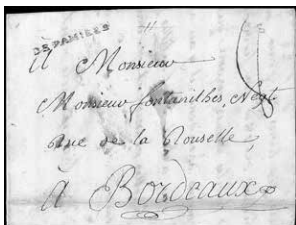 DE PAMIERS
A Monsieur
Monsieur fontanilhes, Negt
Rue de la Rouselle,
à Bordeaux